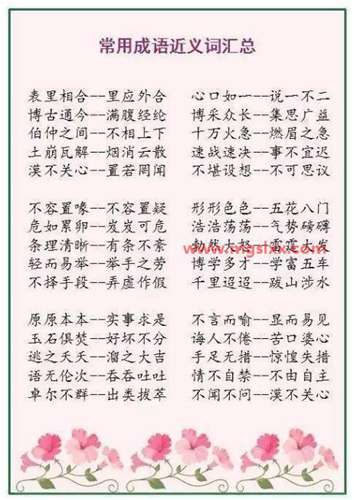 常用成语近义词汇总
表里相合--里应外合 心口如一--说一不二
博古通今--满腹经纶 博采众长--集思广益
伯仲之间--不相上下 十万火急--燃眉之急
土崩瓦解--烟消云散 速战速决--事不宜迟
漠不关心--置若罔闻 不堪设想--不可思议
不容置喙--不容置疑 形形色色--五花八门
危如累卵--岌岌可危 浩浩荡荡--气势磅礴
条理清晰--有条不紊
轻而易举--举手之劳 博学多才--学富五车
不择手段--弄虚作假 千里迢迢--跋山涉水
原原本本--实事求是 不言而喻--显而易见
玉石俱焚--好坏不分 诲人不倦--苦口婆心
逃之夭夭--溜之大吉 手足无措--惊惶失措
语无伦次--吞吞吐吐 情不自禁--不由自主
卓尔不群--出类拔萃 不闻不问--漠不关心